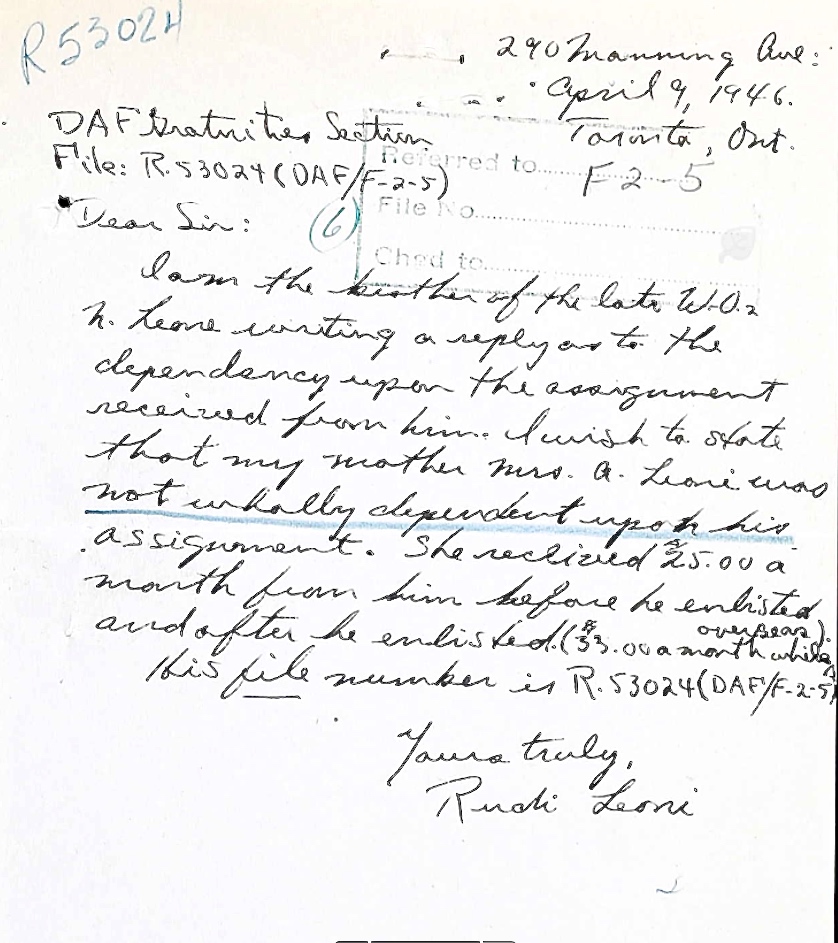 R53024
290 Manning Ave:
April 9, 1946.
Toronto, Ont.
DAF Gratuities Section
File: R.53024 (DAF/F-2-5)
Referred to
F2-5
File No
Chgd to
(6)
Dear Sir:
I am the brother of the late W.O.2
N. Leone writing a reply as to the
dependancy upon the assignment
received from him. I wish to state
that my mother Mrs. A. Leoni was
not wholly dependent upon his
assignment. She received $25.00 a
month from him before he enlisted
and after he enlisted. ($33.00 a month while
overseas).
His file number is R.53024 (DAF/F-2-5)
Yours truly,
Rudi Leoni